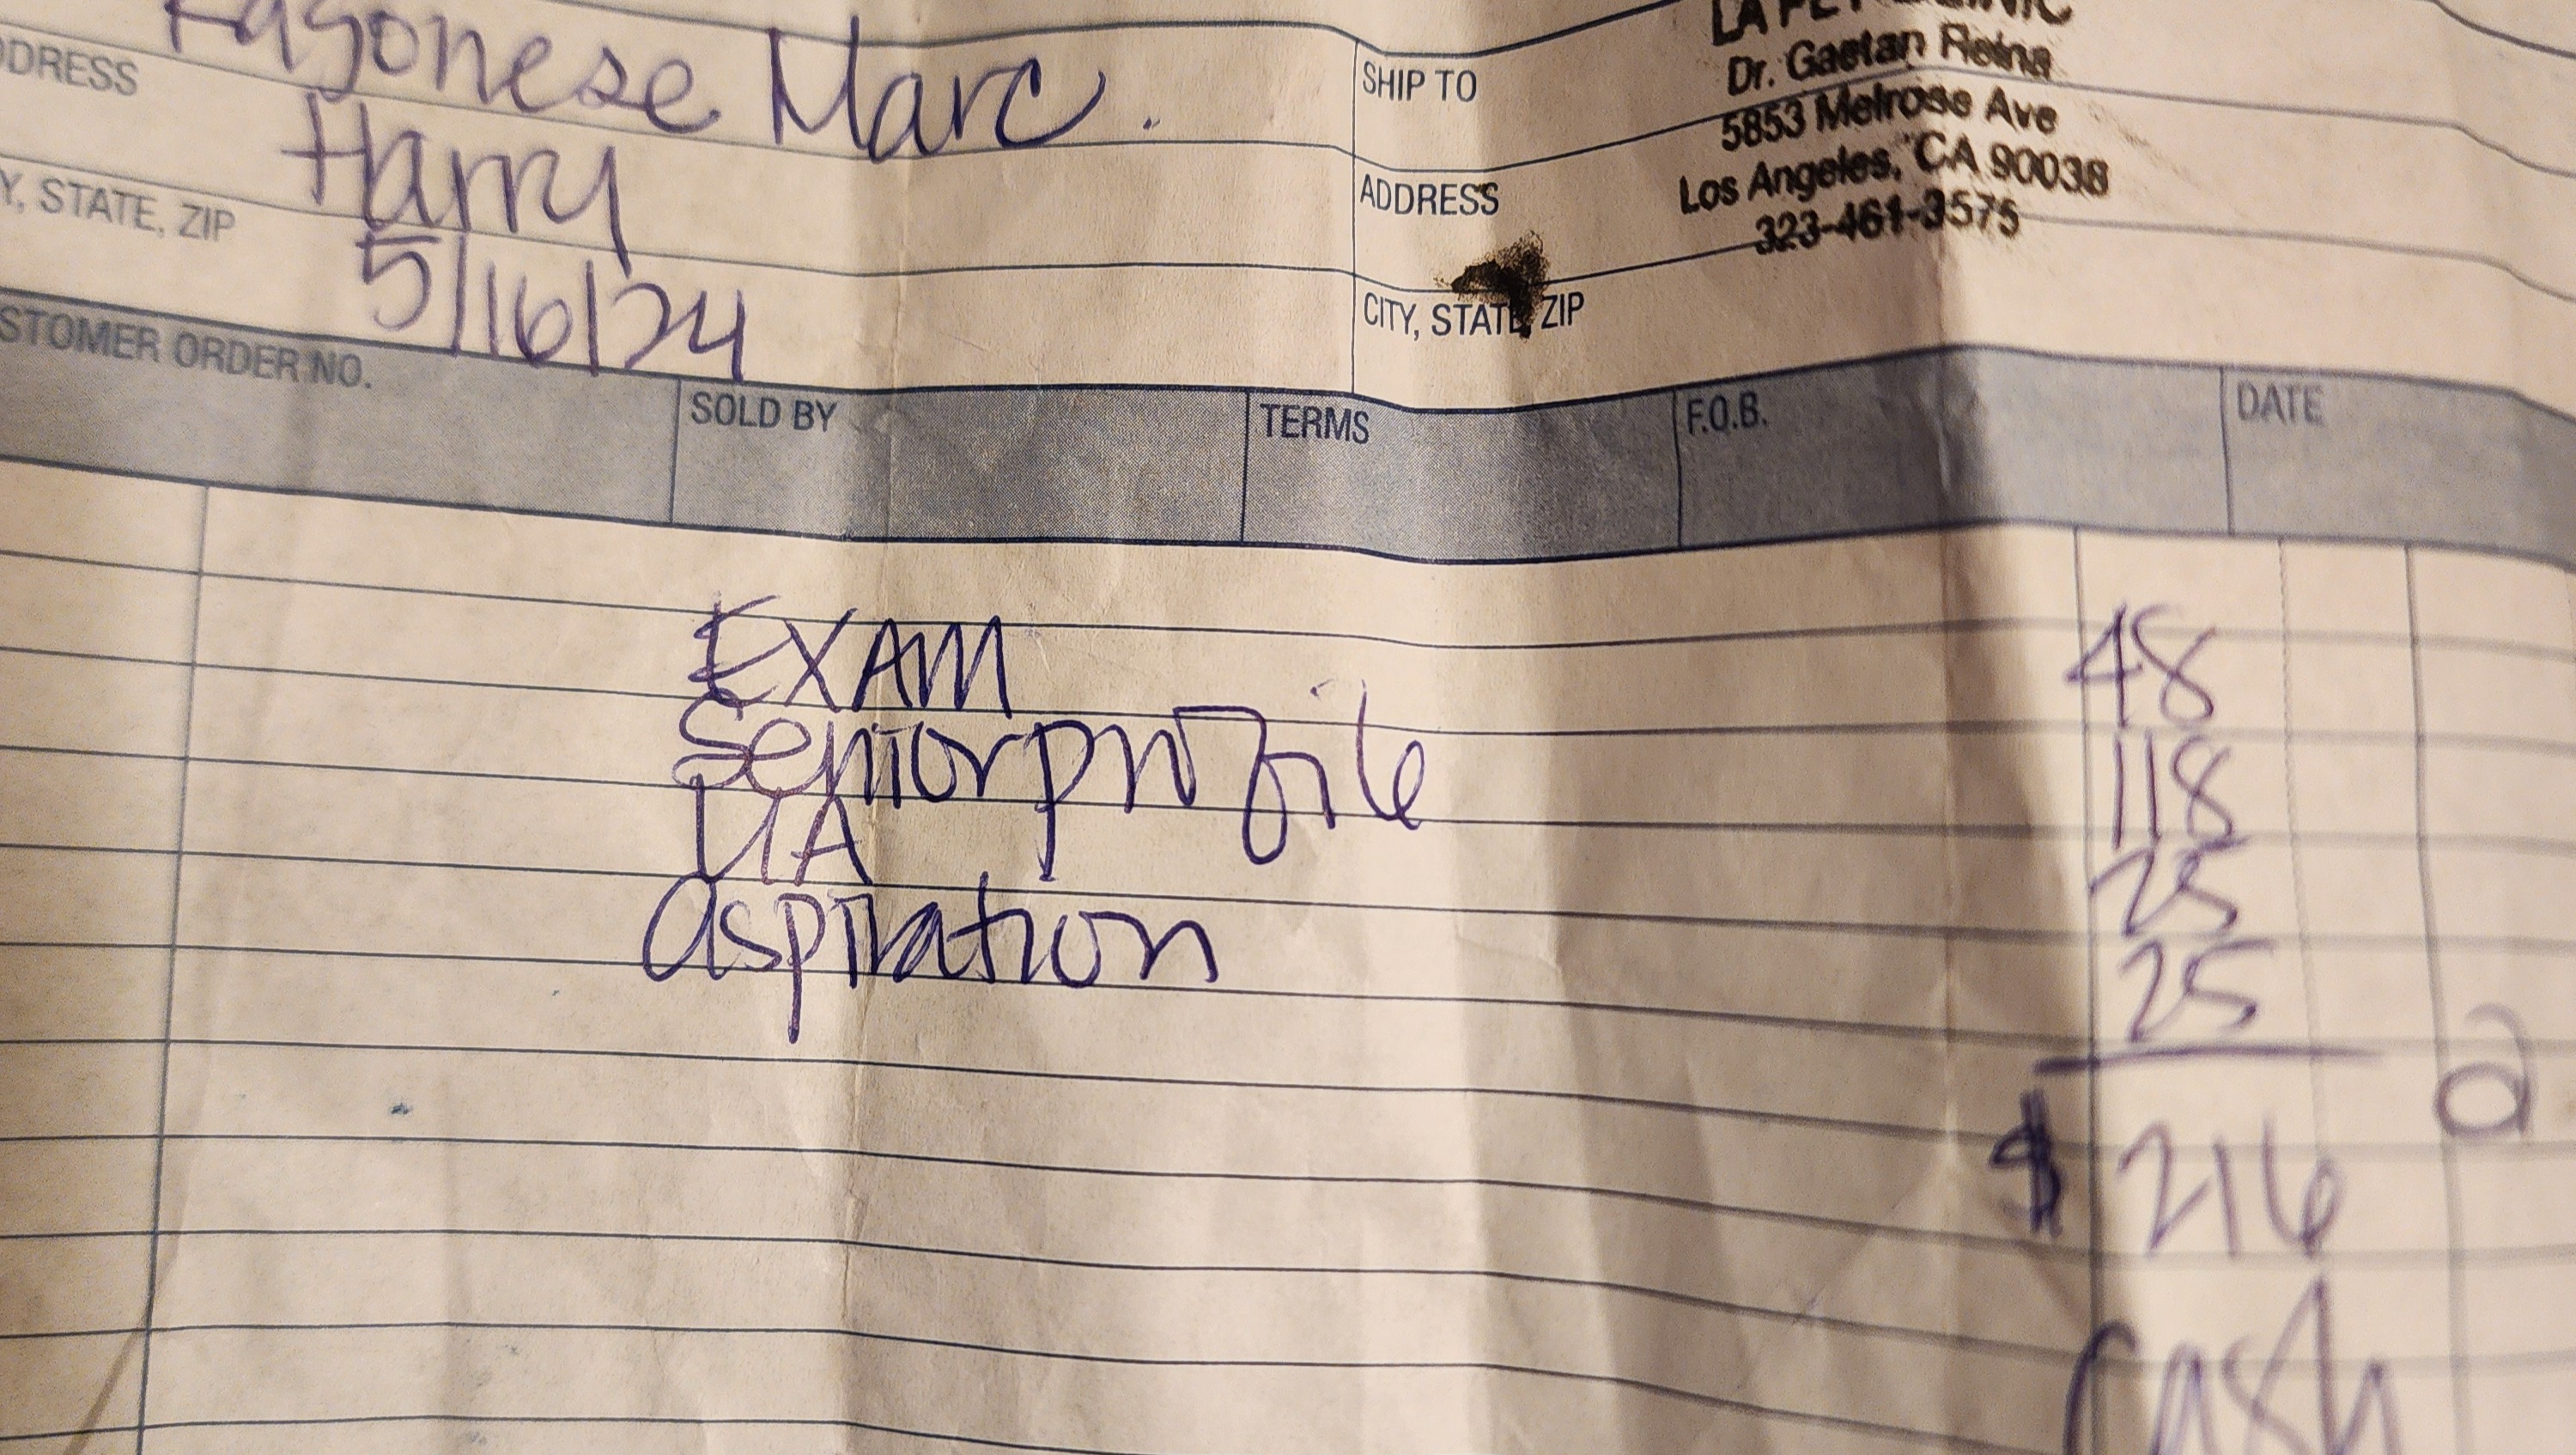 Ragonese Marc.
DDRESS
Harry
Y, STATE, ZIP
5/16/24
SHIP TO
ADDRESS
CITY, STATE, ZIP
LA PET CLINIC
Dr. Gaetan Reina
5853 Melrose Ave
Los Angeles, CA 90038
323-461-3575
STOMER ORDER NO.
SOLD BY
TERMS
F.O.B.
DATE
EXAM 48
Senior profile 118
UA 25
aspiration 25
$ 216
Cash